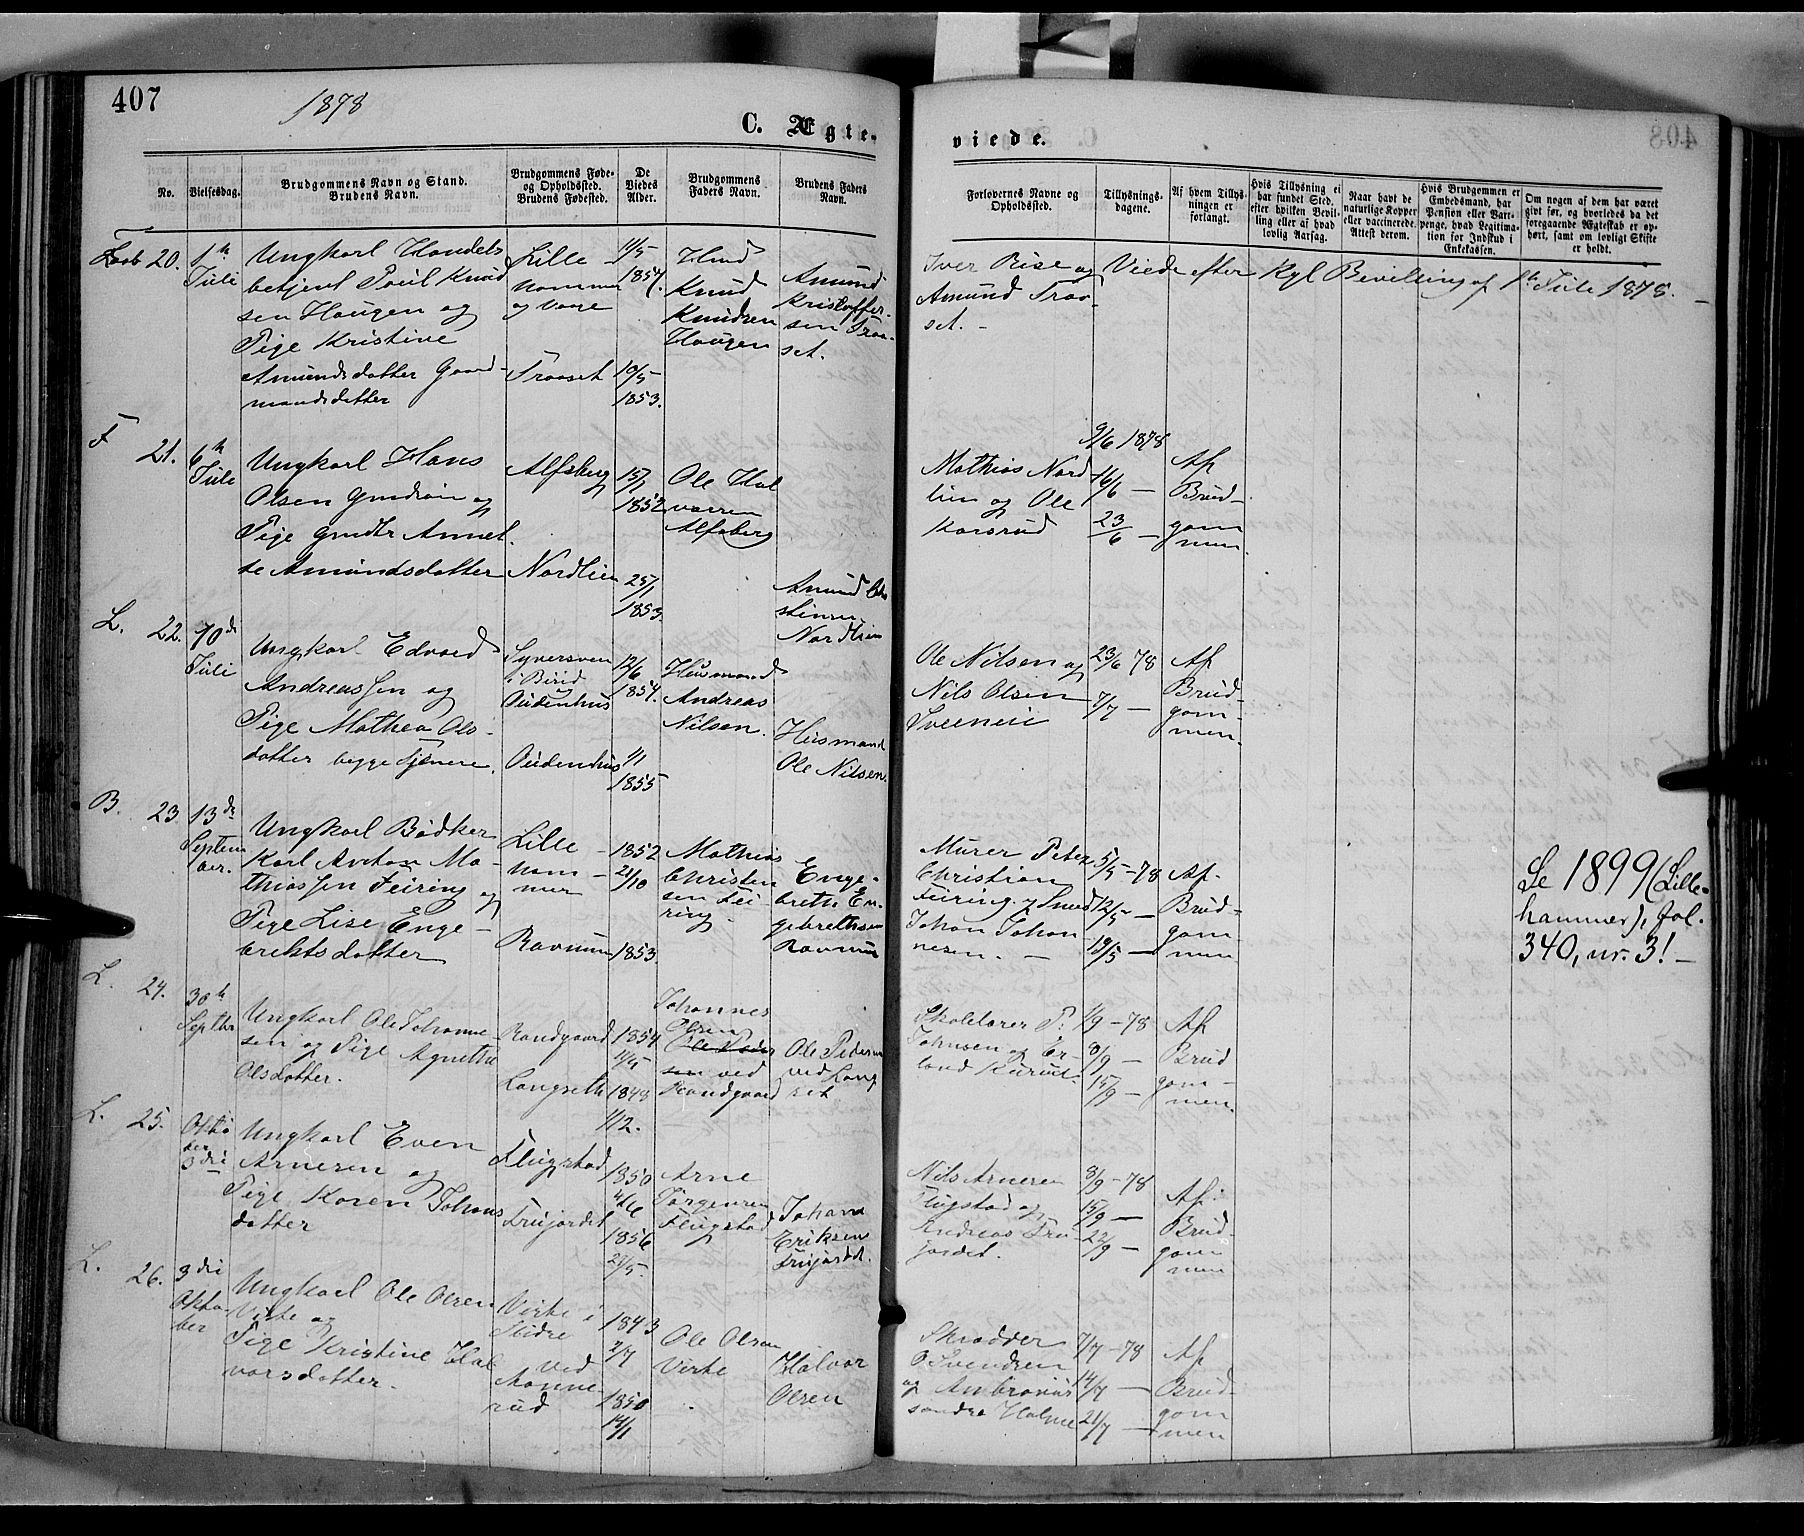 407
1878
C. Ægte-
viede.
No.
Vielsesdag.
Brudgommens Navn og Stand.
Brudens Navn.
Brudgommens Føde-
og Opholdssted.
Brudens Fødested.
De
Viedes
Alder.
Brudgommens
Faders Navn.
Brudens Faders
Navn.
Forlovernes Navne og
Opholdssted.
Tillysnings-
dagene.
Af hvem Tillys-
ningen er
forlangt.
Hvis Tillysning ei
har fundet Sted,
efter hvilken Bevil-
ling eller af hvad
lovlig Aarsag.
Naar havt de
naturlige Kopper
eller vaccinerede.
Attest derom.
Hvis Brudgommen er
Embedsmand, har
Pension eller Vart-
penge, hvad Legitima-
tion for Indskud i
Enkekassen.
Om nogen af dem har været
givt før, og hvorledes da det
foregaaende Ægteskab er op-
hørt, samt om lovligt Skifte
er holdt.
20.
1ste
Juli
Ungkarl Handels
betjent Poul Knud
sen Haugen og
Pige Kristine
Amundsdatter Gaard-
mandsdatter
Lille
hammer
Traaset
11/5
1857.
10/5
1853.
Knud
Knudsen
Haugen
Amund
Kristoffer-
sen Traa-
set.
Iver Riise og
Amund Traa-
set. -
Viede efter Kgl Bevilling af 1ste Juli 1878. -
F
21.
6te
Juli
Ungkarl Hans
Olsen Gmdsøn og
Pige Gmdtr Annet
te Amundsdatter
Alfsberg
Nordlien
15/1
1852
25/1
1853
Ole Hal
vorsen
Alfsberg
Amund
Nordlien
Mathias Nord
lien og Ole
Korsrud
9/6 1878
16/6 -
23/6 -
Af
Brud-
gom
men.
L.
22.
10de
Juli
Ungkarl Edvard
Andreassen og
Pige Mathea Ols-
datter begge Tjenere.
Syversven
i Birid
Oudenhus
Oudenhus
12/6
1854.
1/1
1855
Husmand
Andreas
Nilsen.
Husmand
Ole Nilsen.
Ole Nilsen og
Nils Olsen
Sveeneie
23/6 78
7/7 -
Af
Brud-
gom-
men.
B.
23
13de
Septem
ber.
Ungkarl Bødker
Karl Anton Ma-
thiassen Feiring og
Pige Lise Enge-
brektsdatter
Lille-
ham-
mer
Ravnum
1852
21/10
1853.
Mathias
Christen
sen Fei
ring.
Enge-
breth En-
gebrethsen
Ravnum
Murer Peter
Christian
Feiring. og Smed
Johan Johan
nesen. -
5/5 - 78
12/5 -
19/5 -
Af
Brud-
gom
men
Se 1899 (Lille-
hammer), fol.
340, nr. 3! -
L.
24.
30te
Septbr
Ungkarl Ole Johanne
sen og Pige Agnethe
Olsdatter.
Randgaard
Langseth
1854
11/5
1848
1/12.
Johannes
Olsen
ved
Randgaard
Ole Pedersen
ved Lang
set
Skolelærer P.
Johnsen og Er-
land
1/9 - 78
8/9 -
15/9 -
Af
Brud
gom-
men.
L.
25.
Okto
ber
3die
Ungkarl Even
Arnesen og
Pige Karen Johans
datter
Flugstad
Trujordet
1850
1856
Arne
Jørgensen
Flugstad
Johan
Eriksen
Trujordet.
Nils Arnesen
Flugstad og
Andreas Tru
jordet.
8/9 - 78
15/9 -
22/9 -
Af
Brud-
gom
men
L.
26.
3die
Okto-
ber
Ungkarl Ole Olsen
Virke og
Pige Kristine Hal
vorsdatter.
Virke i
Slidre
ved
1843
2/7
1850
14/1
Ole Olsen
Virke
Halvor
Olsen
Skrædder
O Svendsen
og Ambrosius
7/7 - 78
14/7 -
21/7 -
Af
Brud-
gom
men